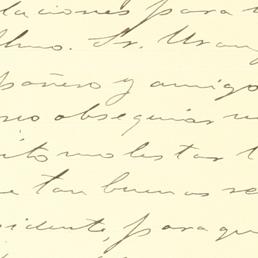 laciones para
Ilmo. Sr. Urang
pañero y amigo
obsequiar
ito molestar
e tan buenas re
sidente, para qu